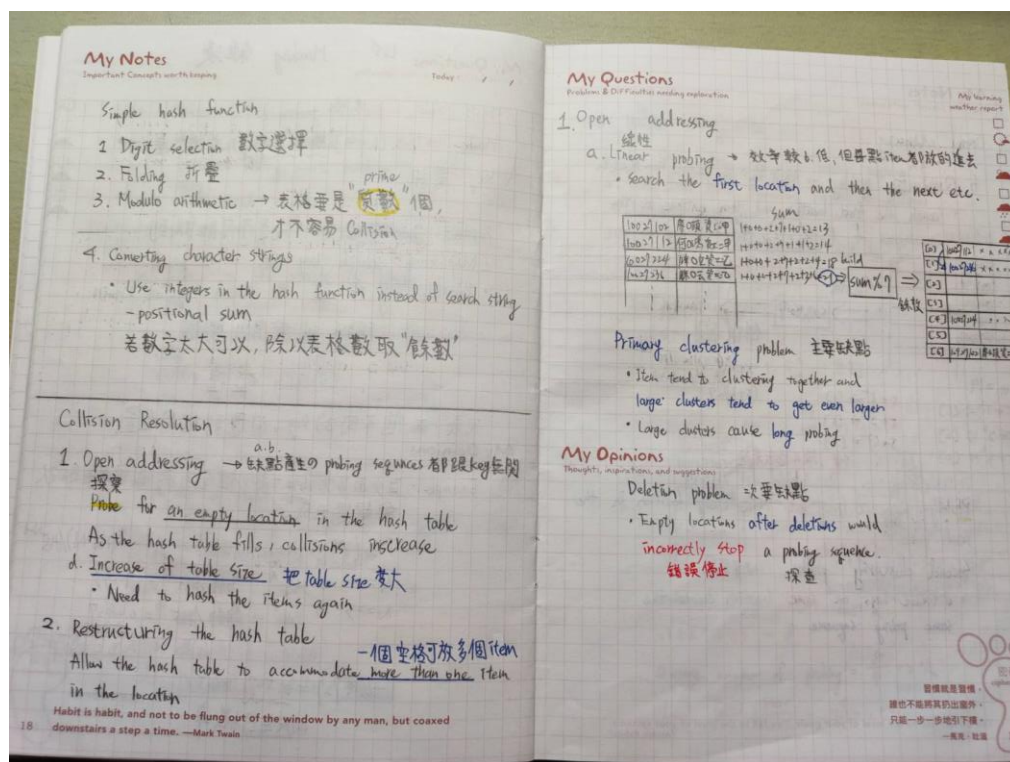 My Notes
Important Concepts worth keeping
Today
Simple hash function
1 Digit selection 數字選擇
2. Folding 折疊
prime
3. Modulo arithmetic → 表格要是"質數"個,
才不容易 Collision
4. Converting character strings
• Use integers in the hash function instead of search string
-positional sum
若數字太大可以,除以表格數取"餘數"
Collision Resolution
a.b.
1. Open addressing → 缺點產生の probing sequnces 都跟key無關
探查
Probe for an empty location in the hash table
As the hash table fills, collisions inscrease
d. Increase of table size 把 table size 變大
• Need to hash the items again
2. Restructuring the hash table
一個空格可放多個item
Allow the hash table to accommodate more than one item
in the location
Habit is habit, and not to be flung out of the window by any man, but coaxed
downstairs a step a time. —Mark Twain
18
My Questions
Problems & Difficulties needing exploration
My learning
weather report
1. Open addressing
線性
a. Linear probing → 效率較低,但每點item都放的進去
• search the first location and then the next etc.
sum
10027102
1+0+0+2+7+1+0+2=13
10027112
1+0+0+2+7+1+1+2=14
10027224
1+0+0+2+7+2+2+4=18
10027236
sum%7 ⇒
餘數
[0] 10027112
[1] 10027236
[2]
[3]
[4] 10027224
[5]
[6] 10027102
Primary clustering problem 主要缺點
• Item tend to clustering together and
large clusters tend to get even larger
• Large clusters cause long probing
My Opinions
Thoughts, inspirations, and suggestions
Deletion problem 次要缺點
• Empty locations after deletions would
incorrectly stop a probing sequence.
錯誤停止 探查
習慣就是習慣,
誰也不能將其扔出窗外,
只能一步一步地引下樓。
—馬克・吐溫